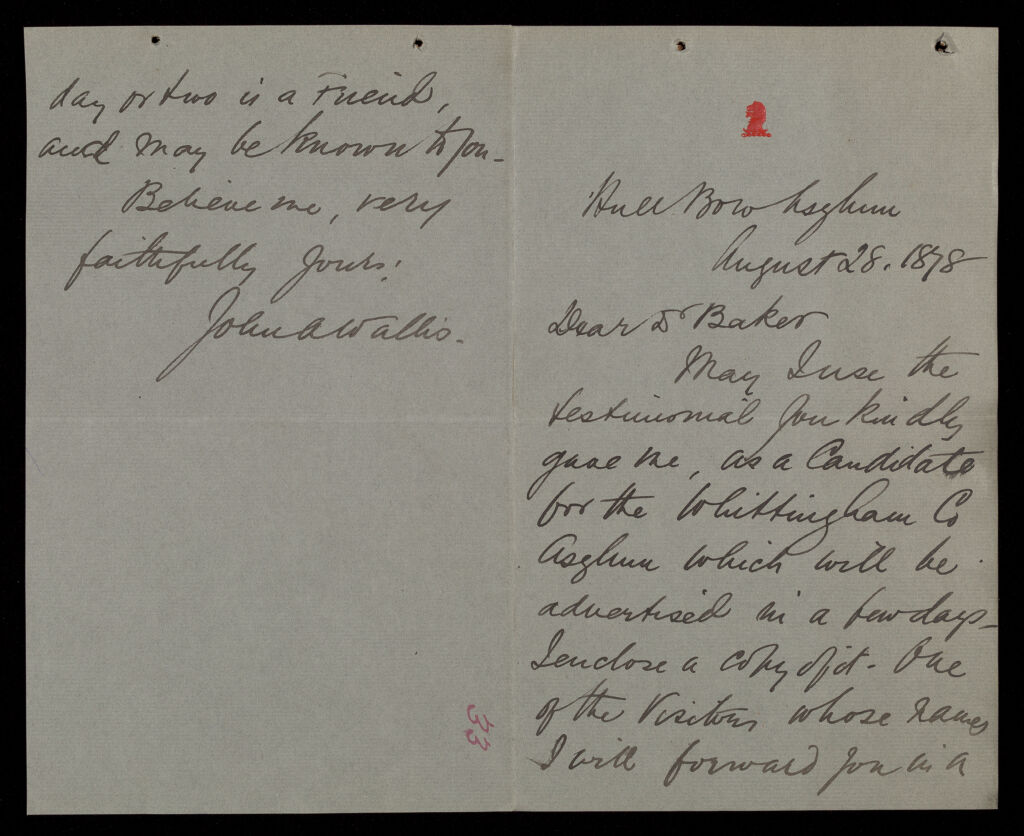 Hull Boro Asylum
August 28. 1878
Dear Dr Baker
May I use the
testimonial you kindly
gave me, as a Candidate
for the Whittingham Co
Asylum which will be
advertised in a few days_
I enclose a copy of it. One
of the Visitors whose names
I will forward you in a
day or two is a Friend,
and may be known to you_
Believe me, very
faithfully yours.
John A Wallis.
33